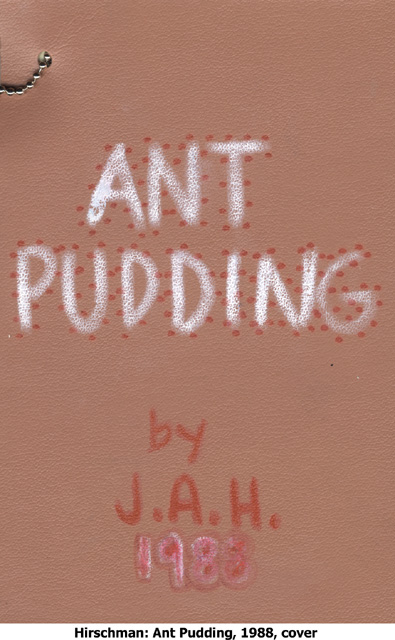 ANT
PUDDING
by
J.A.H.
1988
Hirschman: Ant Pudding, 1988, cover